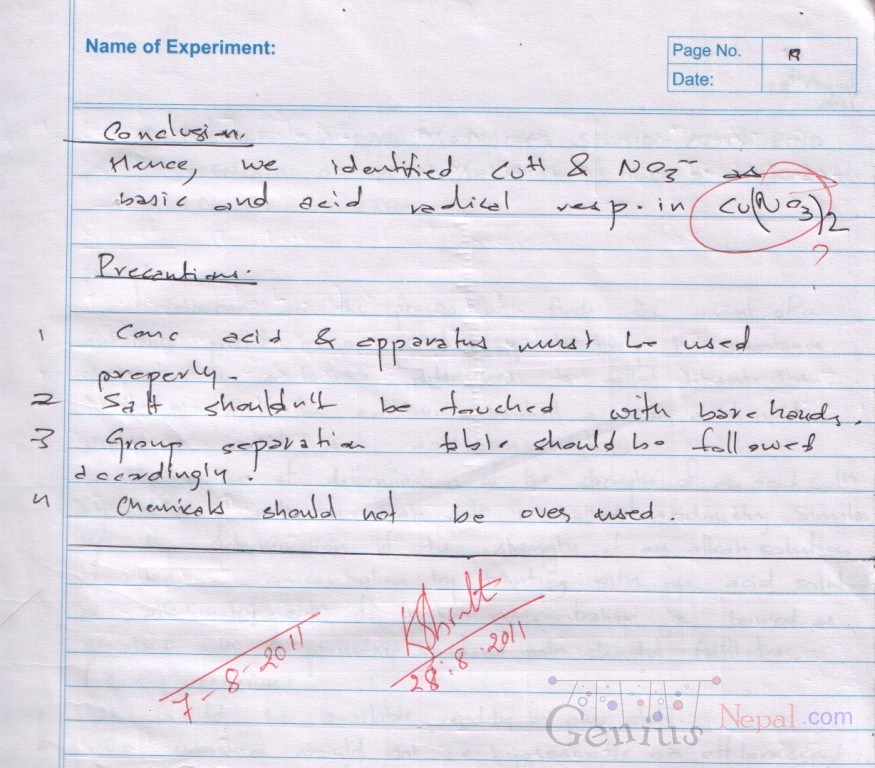 Name of Experiment:
Page No.
Date:
Conclusion.
Hence, we identified Cu++ & NO3- as
basic and acid radical resp. in Cu(NO3)2
?
Precautions.
1 Conc acid & apparatus must be used
properly.
2 Salt shouldn't be touched with bare hands.
3 Group separation table should be followed
accordingly.
4 Chemicals should not be over used.
7-8-2011
28.8.2011
Genius Nepal.com